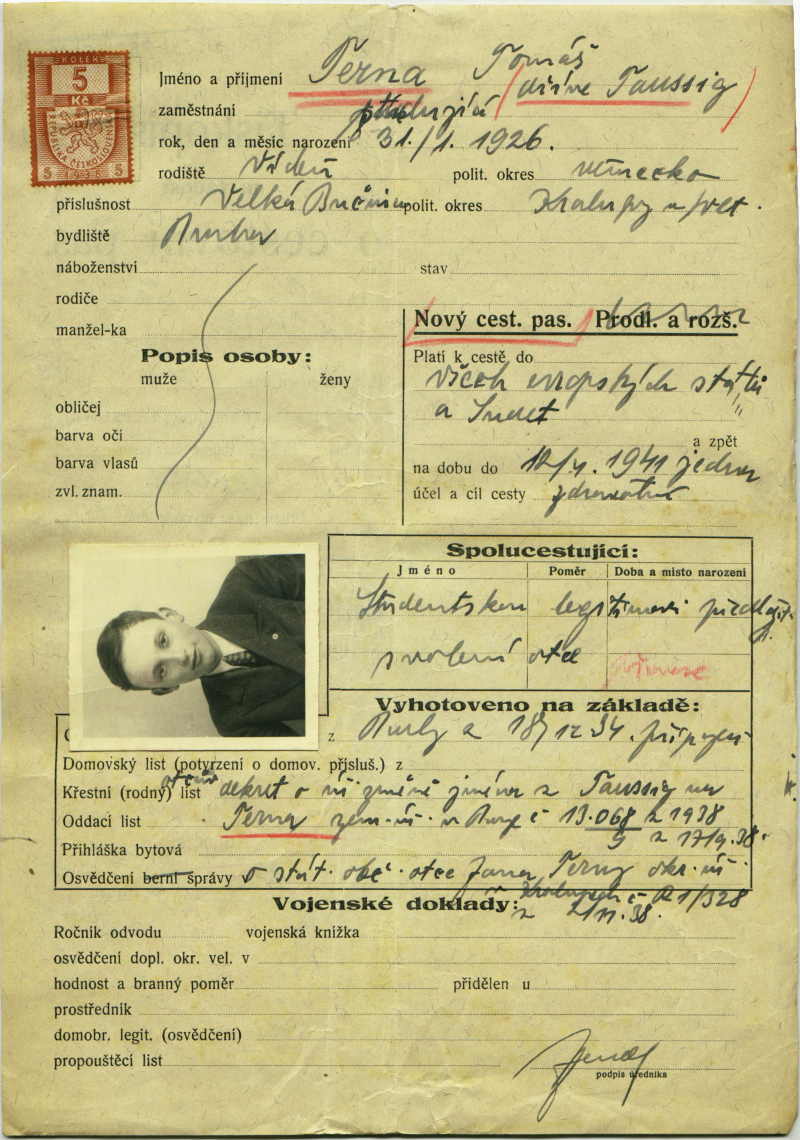 KOLEK
5
Kč
REPUBLIKA ČESKOSLOVENSKÁ
5 1938 5
Jméno a přijmení Terna Tomáš
(dříve Taussig)
zaměstnání studující
rok, den a měsíc narození 31./1. 1926.
rodiště Vídeň polit. okres německo
příslušnost Velká Bučina polit. okres Kralupy n/Vlt.
bydliště
náboženství stav
rodiče
manžel-ka
Nový cest. pas. Prodl. a rozš.
Popis osoby:
muže ženy
obličej
barva očí
barva vlasů
zvl. znam.
Platí k cestě do
všech evropských států
a
a zpět
na dobu do 1941
účel a cíl cesty
Spolucestující:
Jméno Poměr Doba a místo narození
Studentskou
svolení otce
Vyhotoveno na základě:
z
Domovský list (potvrzení o domov. přísluš.) z
Křestní (rodný) list dekret o změně jména z Taussig na
Oddací list Terna zem. úř. v č 13.068 z 1938
Přihláška bytová z 17/9.38.
Osvědčení berní správy o stát. obč. otce Jana Terny okr. úř.
Vojenské doklady:
R 1/328
z 2/11.38.
Ročník odvodu vojenská knížka
osvědčení dopl. okr. vel. v
hodnost a branný poměr přidělen u
prostředník
domobr. legit. (osvědčení)
propouštěcí list
podpis úředníka